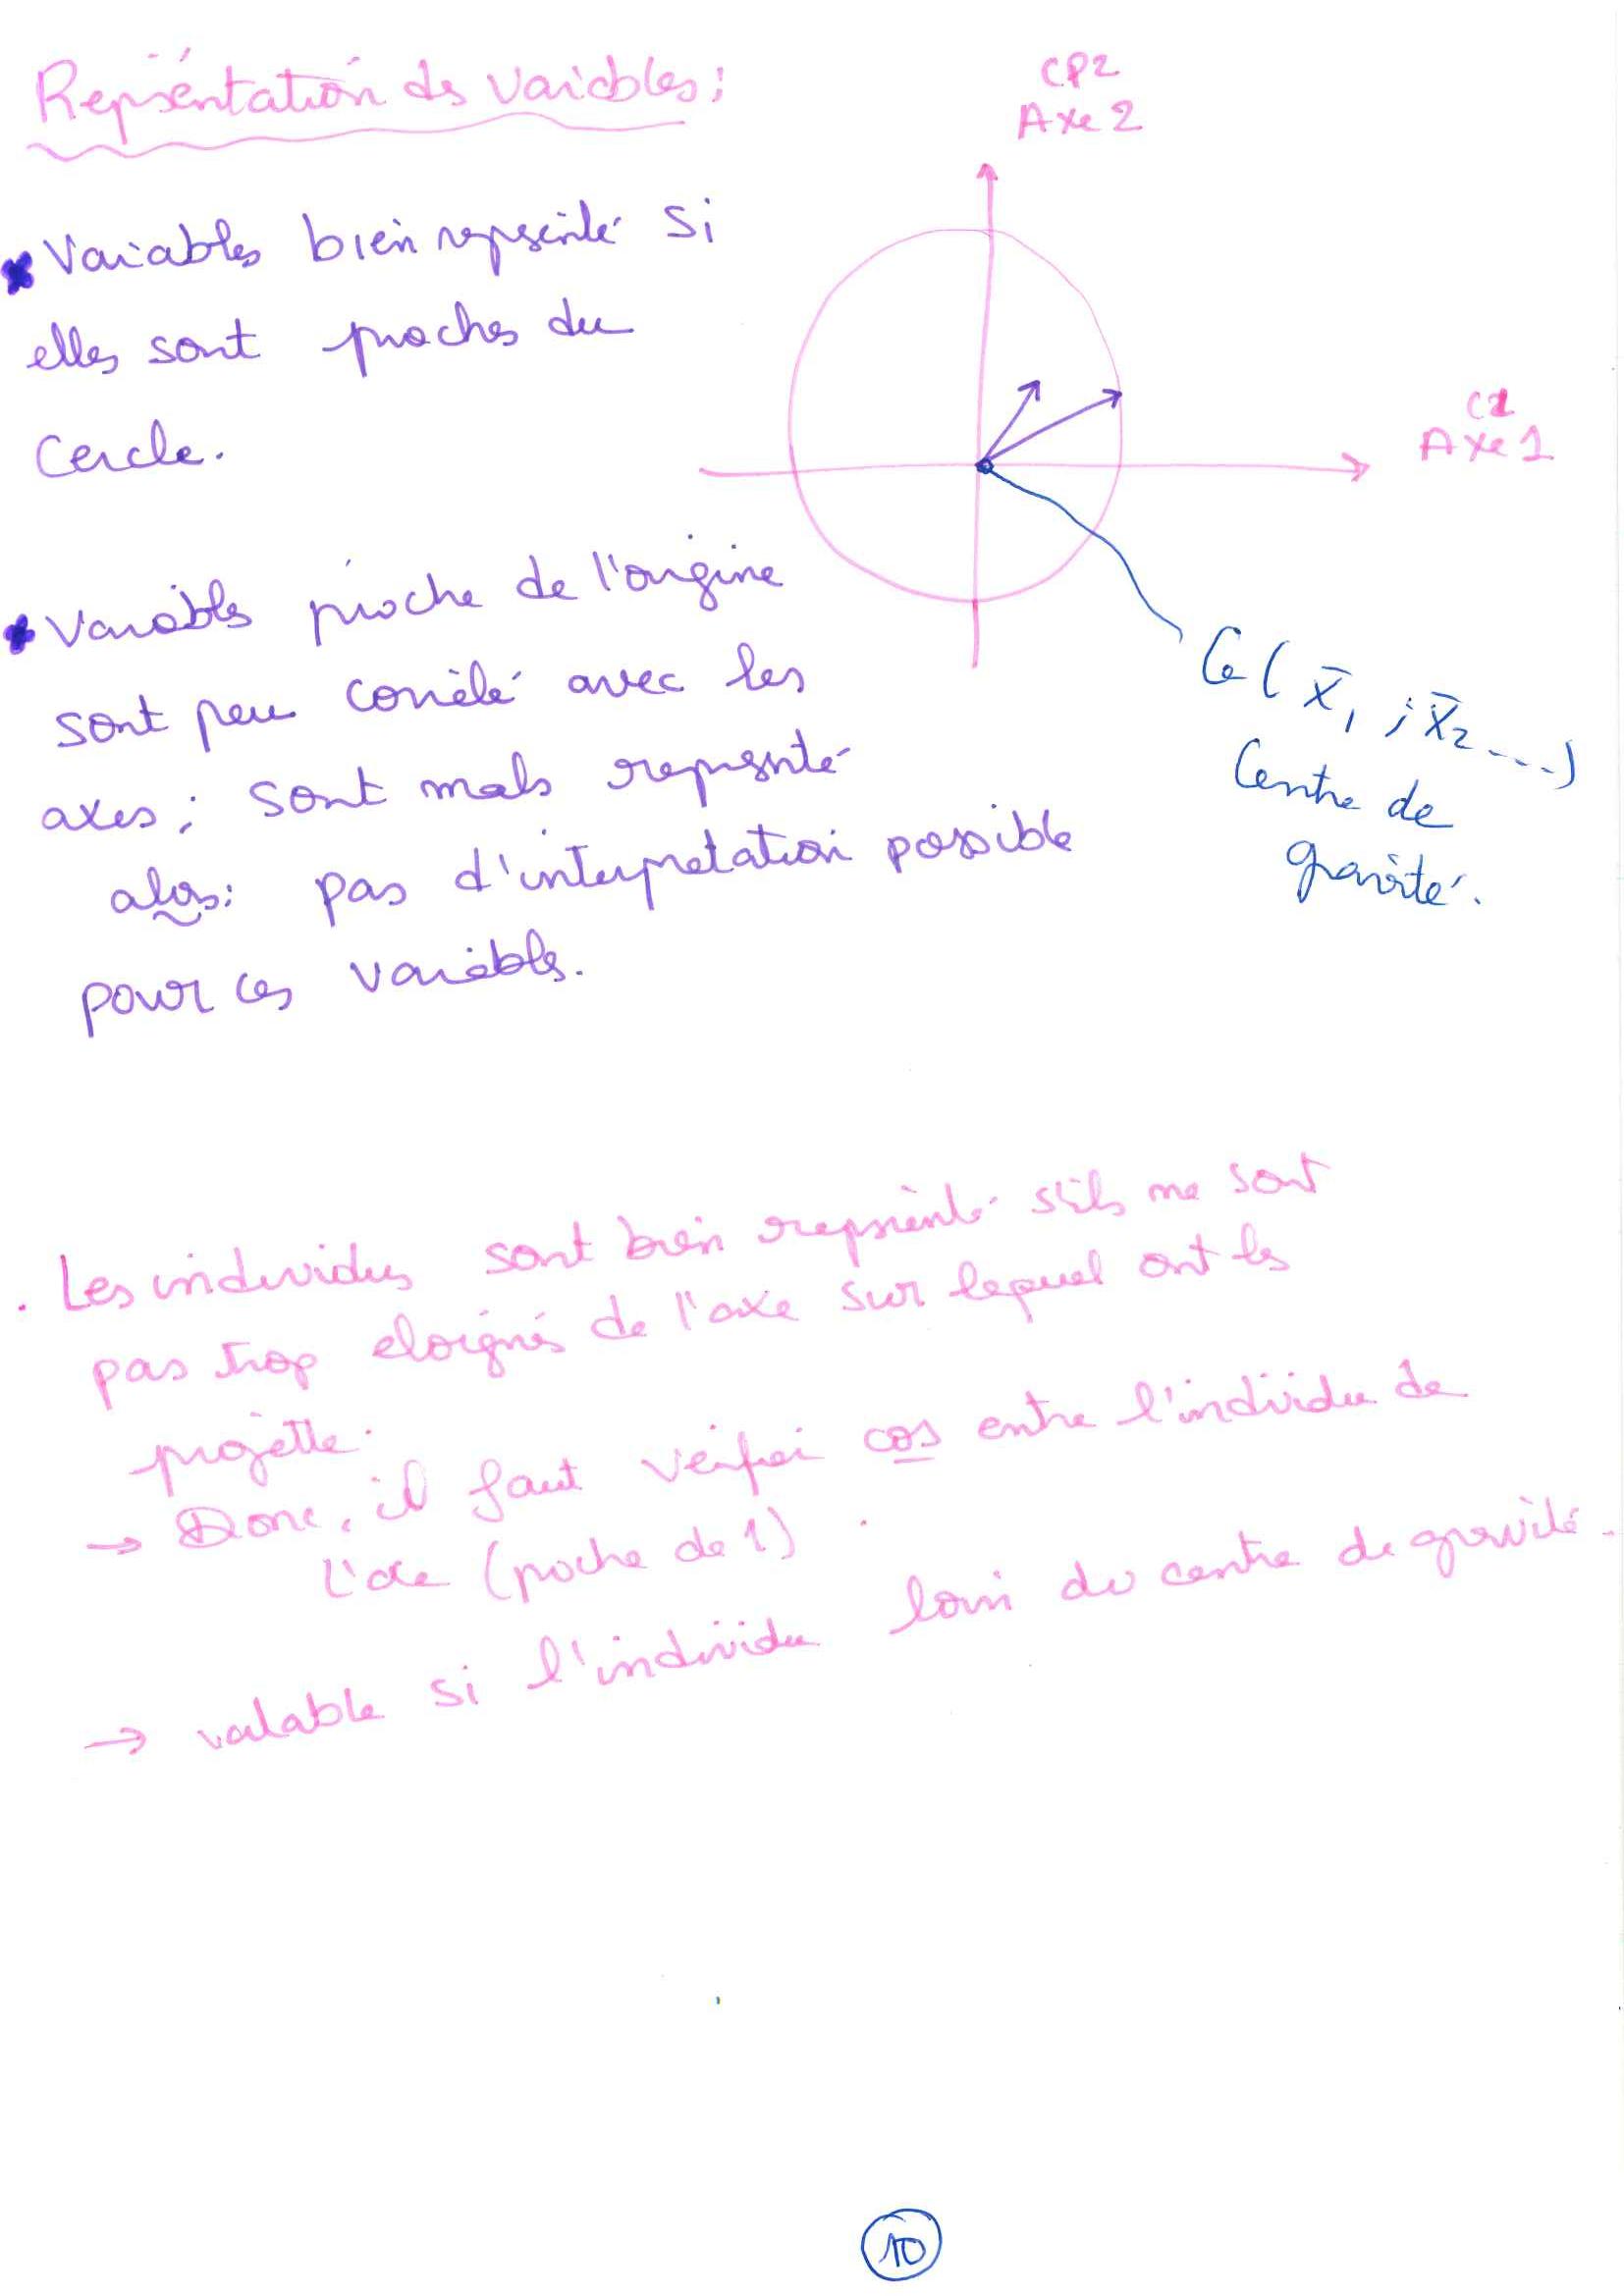 Représentation des variables :
CP2
Axe 2
* Variables bien représenté si
elles sont proches du
cercle.
C1
Axe 1
* Variables proche de l'origine
sont peu corrélé avec les
axes ; sont mals représenté
alors : pas d'interpretation possible
pour ces variables.
G ( X̄1 ; X̄2 ---)
Centre de
gravité.
. Les individus sont bien représenté s'ils ne sont
pas trop eloignés de l'axe sur lequel ont les
projette.
→ Donc, il faut vérifier cos entre l'individu de
l'axe (proche de 1)
→ valable si l'individu loin du centre de gravité.
10